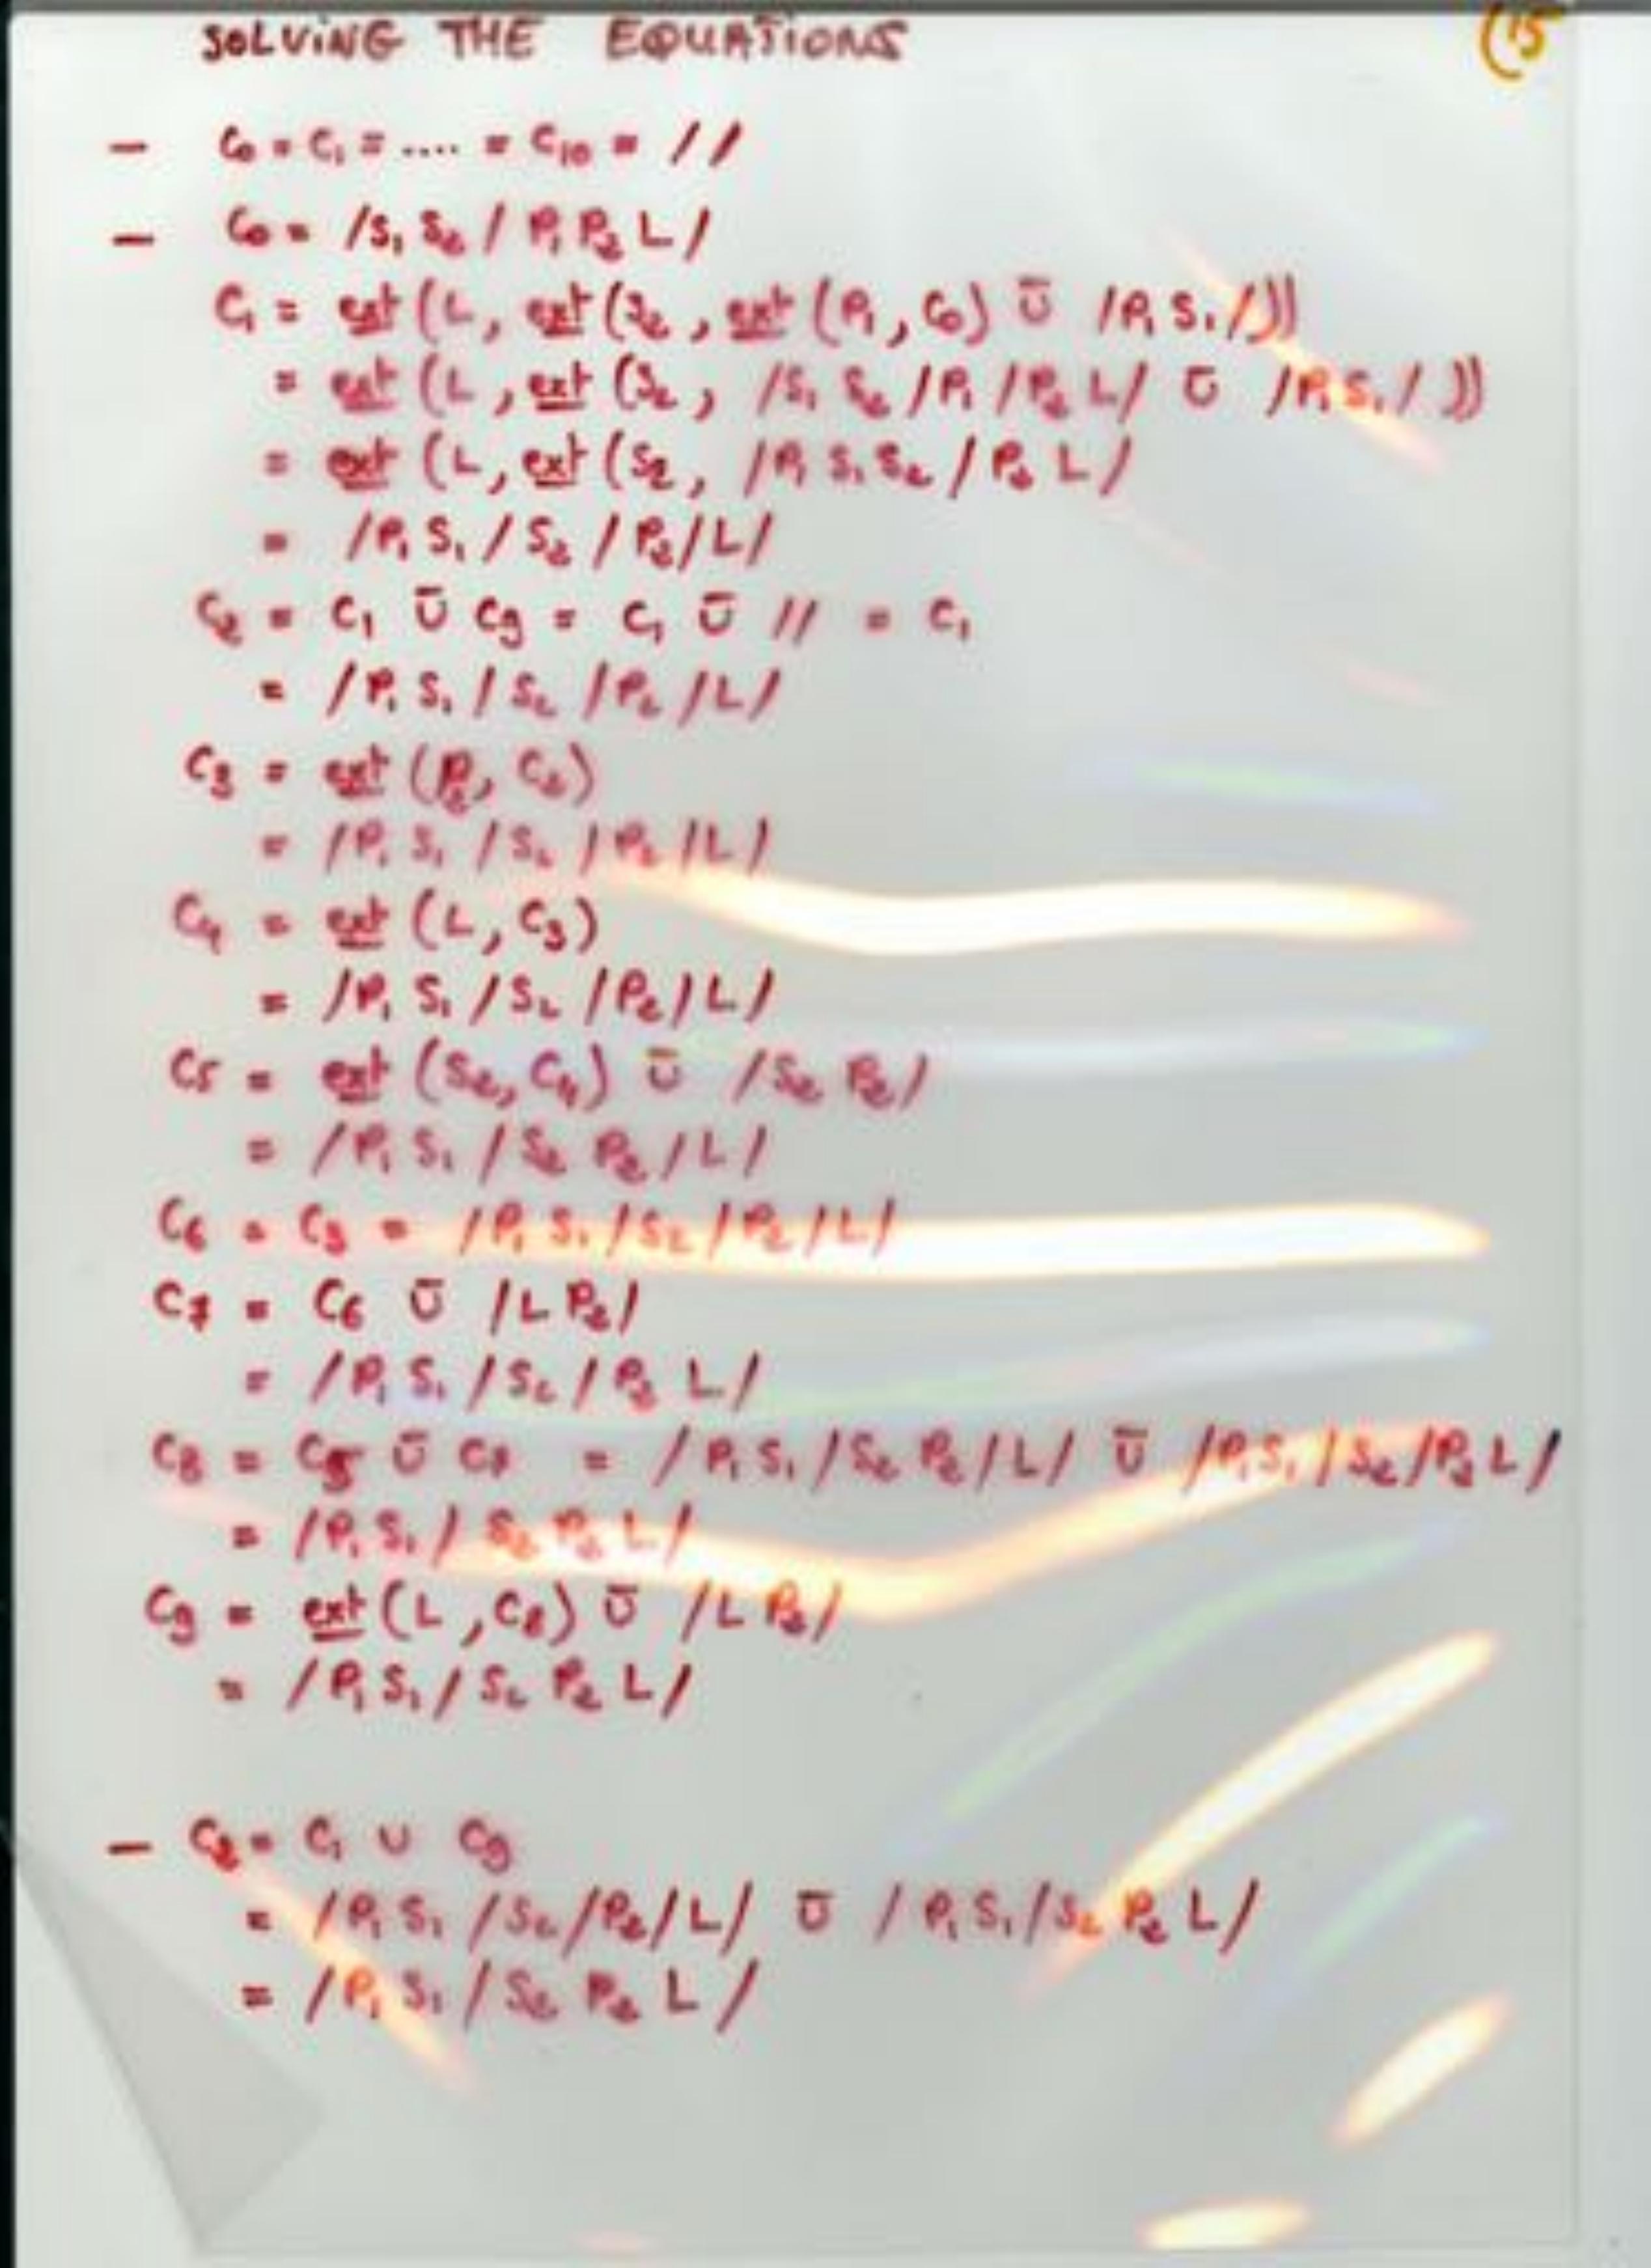 SOLVING THE EQUATIONS (15
– C₀ = C₁ = .... = C₁₀ = //
– C₀ = /S₁ S₂ / P₁ P₂ L /
C₁ = ext (L, ext (S₂, ext (P₁, C₀) Ū /P₁ S₁ /))
= ext (L, ext (S₂, /S₁ S₂ /P₁ /P₂ L/ Ū /P₁ S₁ / ))
= ext (L, ext (S₂, /P₁ S₁ S₂ / P₂ L /
= /P₁ S₁ / S₂ / P₂ / L /
C₂ = C₁ Ū C₉ = C₁ Ū // = C₁
= /P₁ S₁ / S₂ / P₂ / L /
C₃ = ext (P₂, C₂)
= /P₁ S₁ / S₂ / P₂ / L /
C₄ = ext (L, C₃)
= /P₁ S₁ / S₂ / P₂ / L /
C₅ = ext (S₂, C₄) Ū /S₂ P₂ /
= /P₁ S₁ / S₂ P₂ / L /
C₆ = C₃ = /P₁ S₁ / S₂ / P₂ / L /
C₇ = C₆ Ū /L P₂ /
= /P₁ S₁ / S₂ / P₂ L /
C₈ = C₅ Ū C₇ = /P₁ S₁ / S₂ P₂ / L / Ū /P₁ S₁ / S₂ / P₂ L /
= /P₁ S₁ / S₂ P₂ L /
C₉ = ext (L, C₈) Ū /L P₂ /
= /P₁ S₁ / S₂ P₂ L /
– C₂ = C₁ ∪ C₉
= /P₁ S₁ / S₂ / P₂ / L / Ū /P₁ S₁ / S₂ P₂ L /
= /P₁ S₁ / S₂ P₂ L /